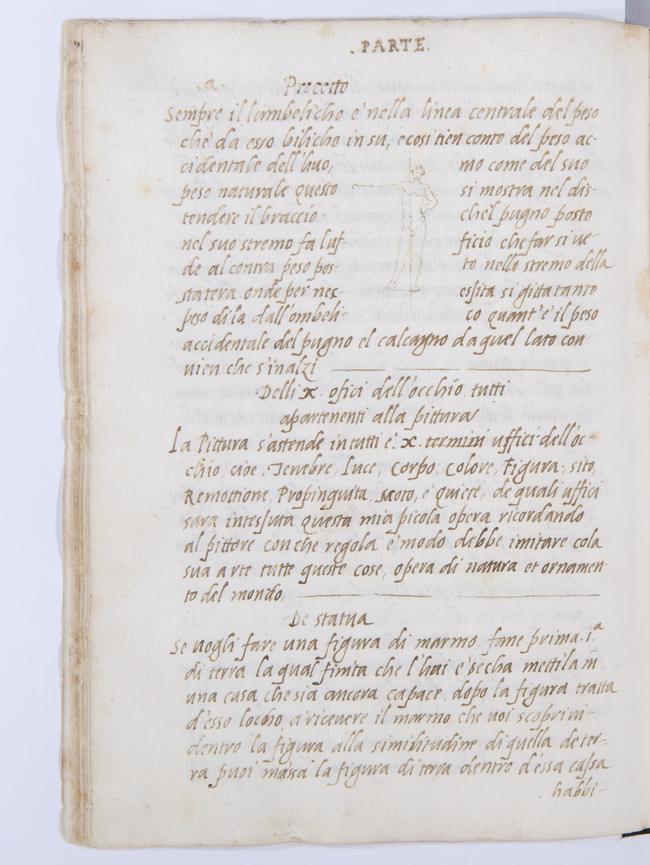 . PARTE .
a Precetto
Sempre il lombelicho e' nella linea centrale del peso
che' da esso bilicho in su, e cosi tien conto del peso ac-
cidentale dell'huo, mo come del suo
peso naturale questo si mostra nel dis-
tendere il braccio chel pugno posto
nel suo stremo fa luf- ficio che far si ve
de al contra peso pos- to nello stremo della
statera onde per nec essita si gitta tanto
peso di la dall'ombeli- co quant'e' il peso
accidentale del pugno el calcagno da quel lato con
uien che s'inalzi
Delli x. ofici dell'occhio tutti
apartenenti alla pittura
La Pittura s'astende in tutti e'. x. termini uffici dell'oc-
chio cioe. Tenebre, Luce, Corpo, Colore, Figura, sito,
Remottione, Propinquita, Moto, e' quiete, de quali uffici
sara intessuta questa mia picola opera ricordando
al pittore con che regola e' modo debbe imitare cola
sua arte tutte queste cose, opera di natura et ornamen-
to del mondo.
De statua
Se uogli fare una figura di marmo, fane prima .i.a
di terra la qual finita che l'hai e' secha mettila in
una casa che sia ancora capace, dopo la figura tratta
d'esso locho, a riceuere il marmo che uoi scoprirui
dentro la figura alla similitudine di quella de ter-
ra puoi massa la figura di terra dentro d'essa cassa
habbi-